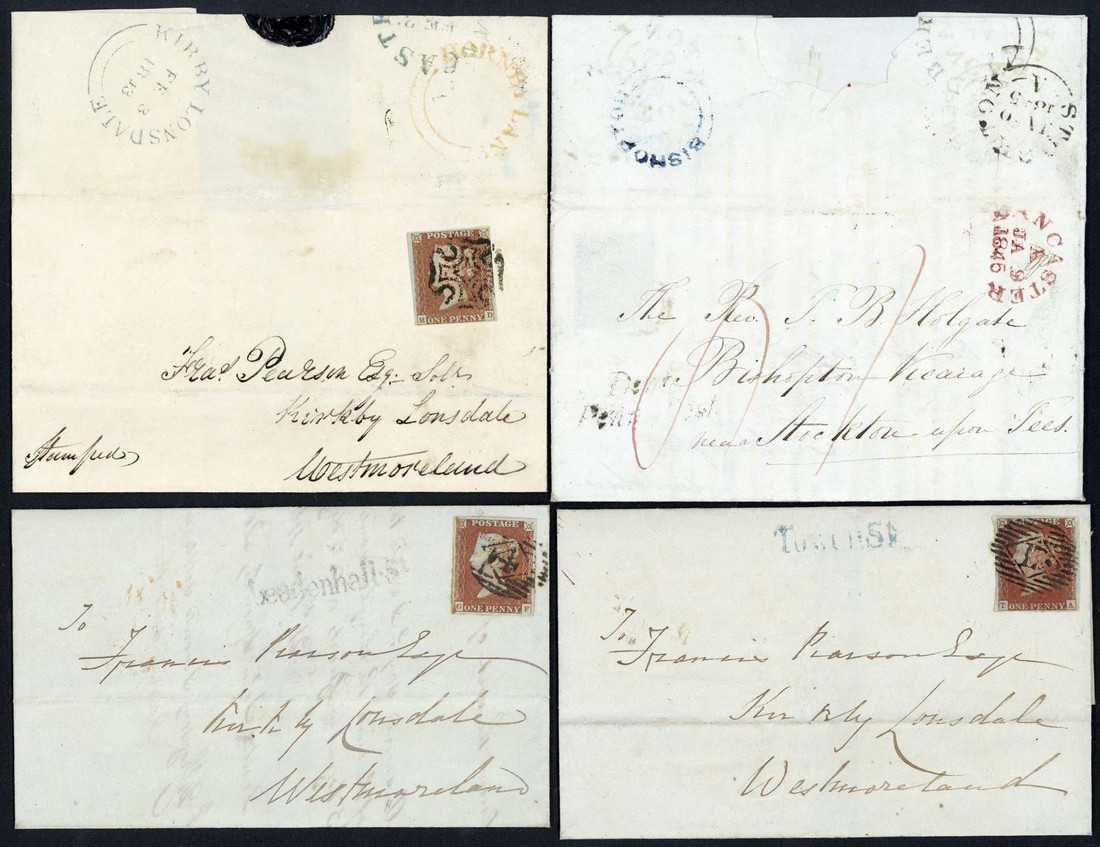 KIRBY LONSDALE
FE 3
1843
CASTE
HORNBY LAN
POSTAGE
M D
ONE PENNY
Fras. Pearson Esq. Solr.
Kirkby Lonsdale
Stamped
Westmoreland
BISHOP
NCASTER
JA 9
1845
The Rev. T. B. Holgate
Bishopton Vicarage
near Stockton upon Tees.
POSTAGE
ONE PENNY
Leadenhall St
To
Francis Pearson Esqr
Kirkby Lonsdale
Westmoreland
Tower St
T A
ONE PENNY
To
Francis Pearson Esqr
Kirkby Lonsdale
Westmoreland